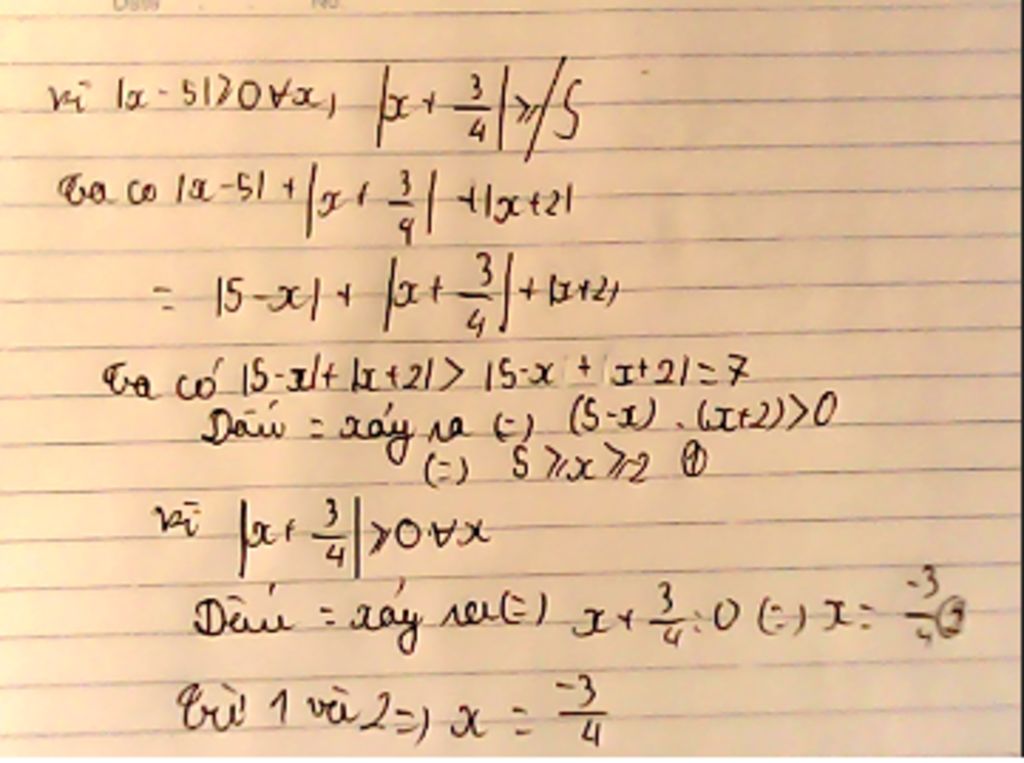 Vì |x - 5| ⩾ 0 ∀x, |x + 3/4| ⩾
Ta có |x - 5| + |x + 3/4| + |x + 2|
= |5 - x| + |x + 3/4| + |x + 2|
Ta có |5 - x| + |x + 2| > |5 - x + x + 2| = 7
Dấu = xảy ra (=) (5 - x) . (x + 2) > 0
(=) 5 ⩾ x ⩾ -2 ①
Vì |x + 3/4| ⩾ 0 ∀x
Dấu = xảy ra (=) x + 3/4 = 0 (=) x = -3/4 ②
Từ 1 và 2 =) x = -3/4